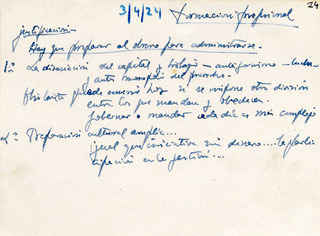 24
3/4/24 Formación profesional
justificación -
Hay que preparar al obrero para administrarse.
1º La disociación del capital y trabajo - antifascismo - lucha
y anti monopolio del provecho.
Obstante puede ocurrir hoy si se impone otra división
entre los que mandan y obedecen.
Gobernar o mandar cada día es más complejo
2º Preparación cultural amplia...
igual que iniciativa sin dinero.... la partici
cipación en la gestión...